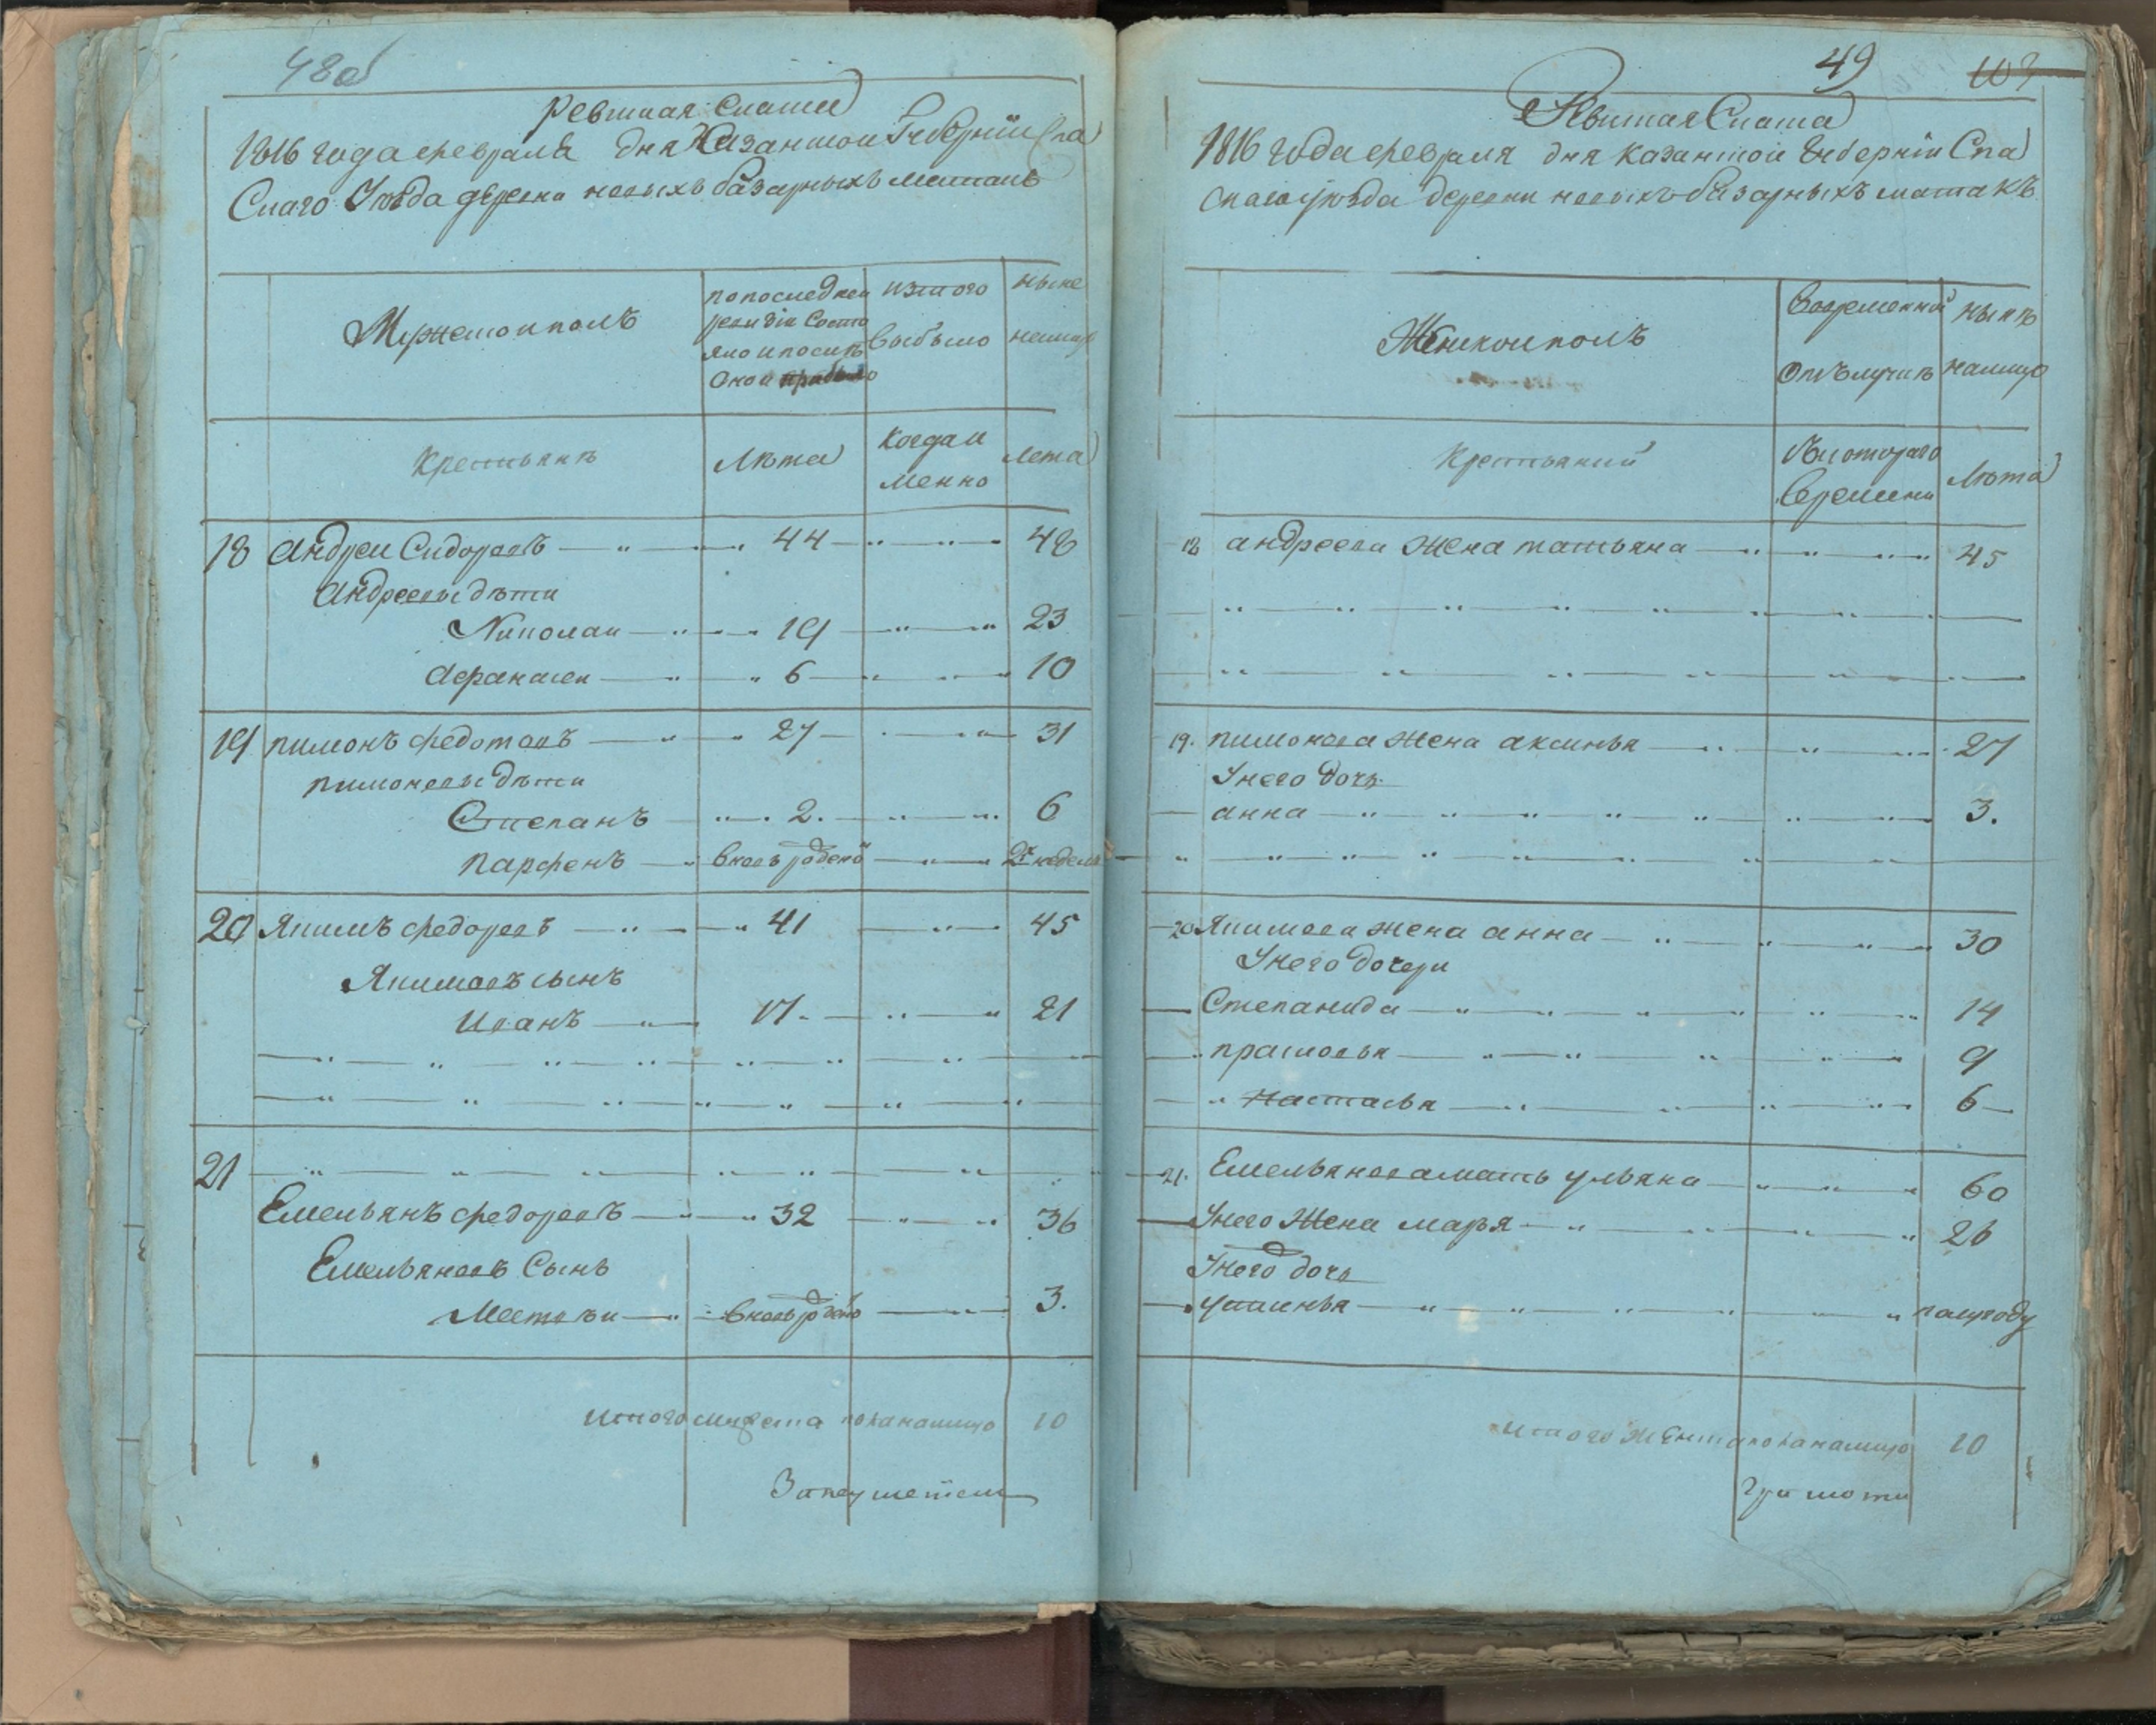 48об
Ревиская Скаска
1816 года февраля дня Казанской Губернии Спа
скаго Уезда деревни новыхъ базарныхъ матакъ
Мужескои полъ
по последнеи ревизiи Состо яло и после Онои прибыло
изтого Выбыло
ныне налицо
Крестьяне
Лѣта
Когда и менно
Лета
18 Андреи Сидоровъ 44 48
Андреевы дѣти
Николаи 19 23
Афанасеи 6 10
19 пимонъ федотовъ 27 31
пимоновы дѣти
Степанъ 2. 6
парфенъ вновь рожденои 2х недель
20 Якимъ федоровъ 41 45
Якимовъ сынъ
Иванъ 17. 21
21
Емельянъ федоровъ 32 36
Емельяновъ Сынъ
вновь рожденои 3.
Итого мужеска пола налицо 10
49 103
Ревиская Скаска
1816 года февраля дня Казанской Губернiи Спа
скаго уѣзда деревни новыхъ базарныхъ матакъ
Женскои полъ
Вовременнои Отълучкѣ
Нынѣ налицо
Крестьянки
Съкотораго Времени
Лѣта
18 андреева Жена татьяна 45
19. пимонова Жена аксинья 27
Унего дочь
анна 3.
20 Якимова Жена анна 30
Унего дочери
Степанида 14
прасковья 9
настасья 6
21. Емельянова мать ульяна 60
Унего Жена марья 26
Унего дочь
устинья полугоду
Итого Женска пола налицо 10